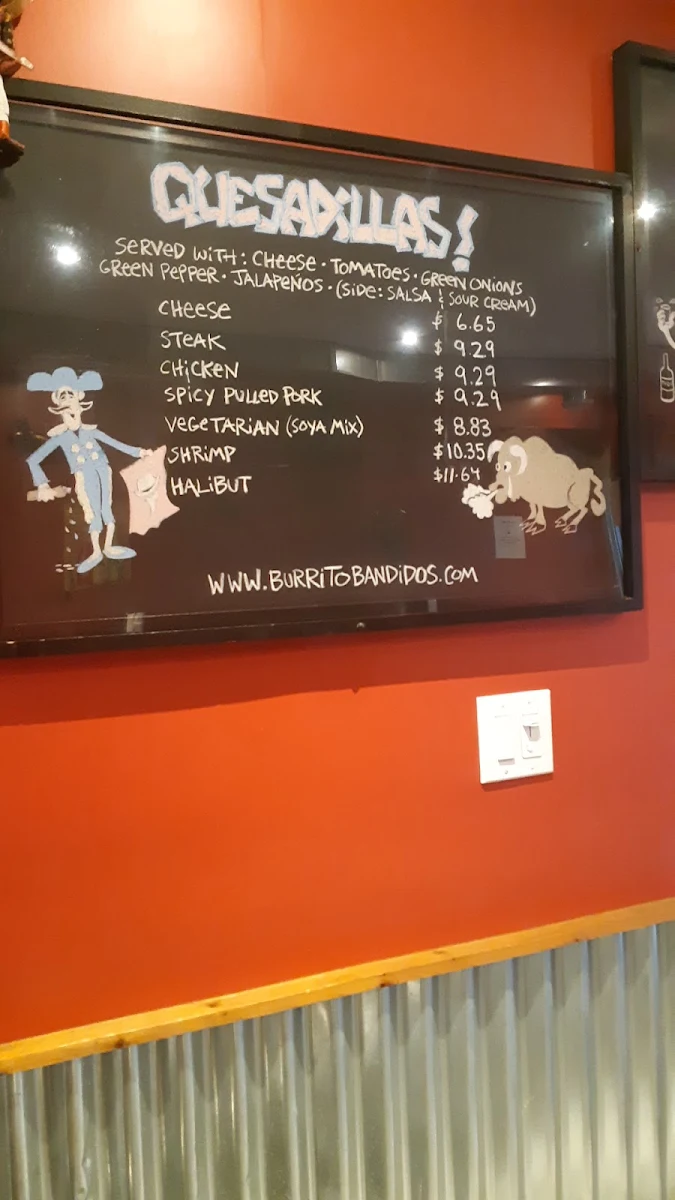 QUESADiLLAS!
SERVED WiTH: CHEESE · TOMATOES · GREEN ONIONS
GREEN PEPPER · JALAPEÑOS · (SiDE: SALSA & SOUR CREAM)
CHEESE $ 6.65
STEAK $ 9.29
CHiCKEN $ 9.29
SPiCY PULLED PORK $ 9.29
VEGETARiAN (SOYA MiX) $ 8.83
SHRiMP $10.35
HALiBUT $11.64
WWW.BURRiTOBANDiDOS.COM